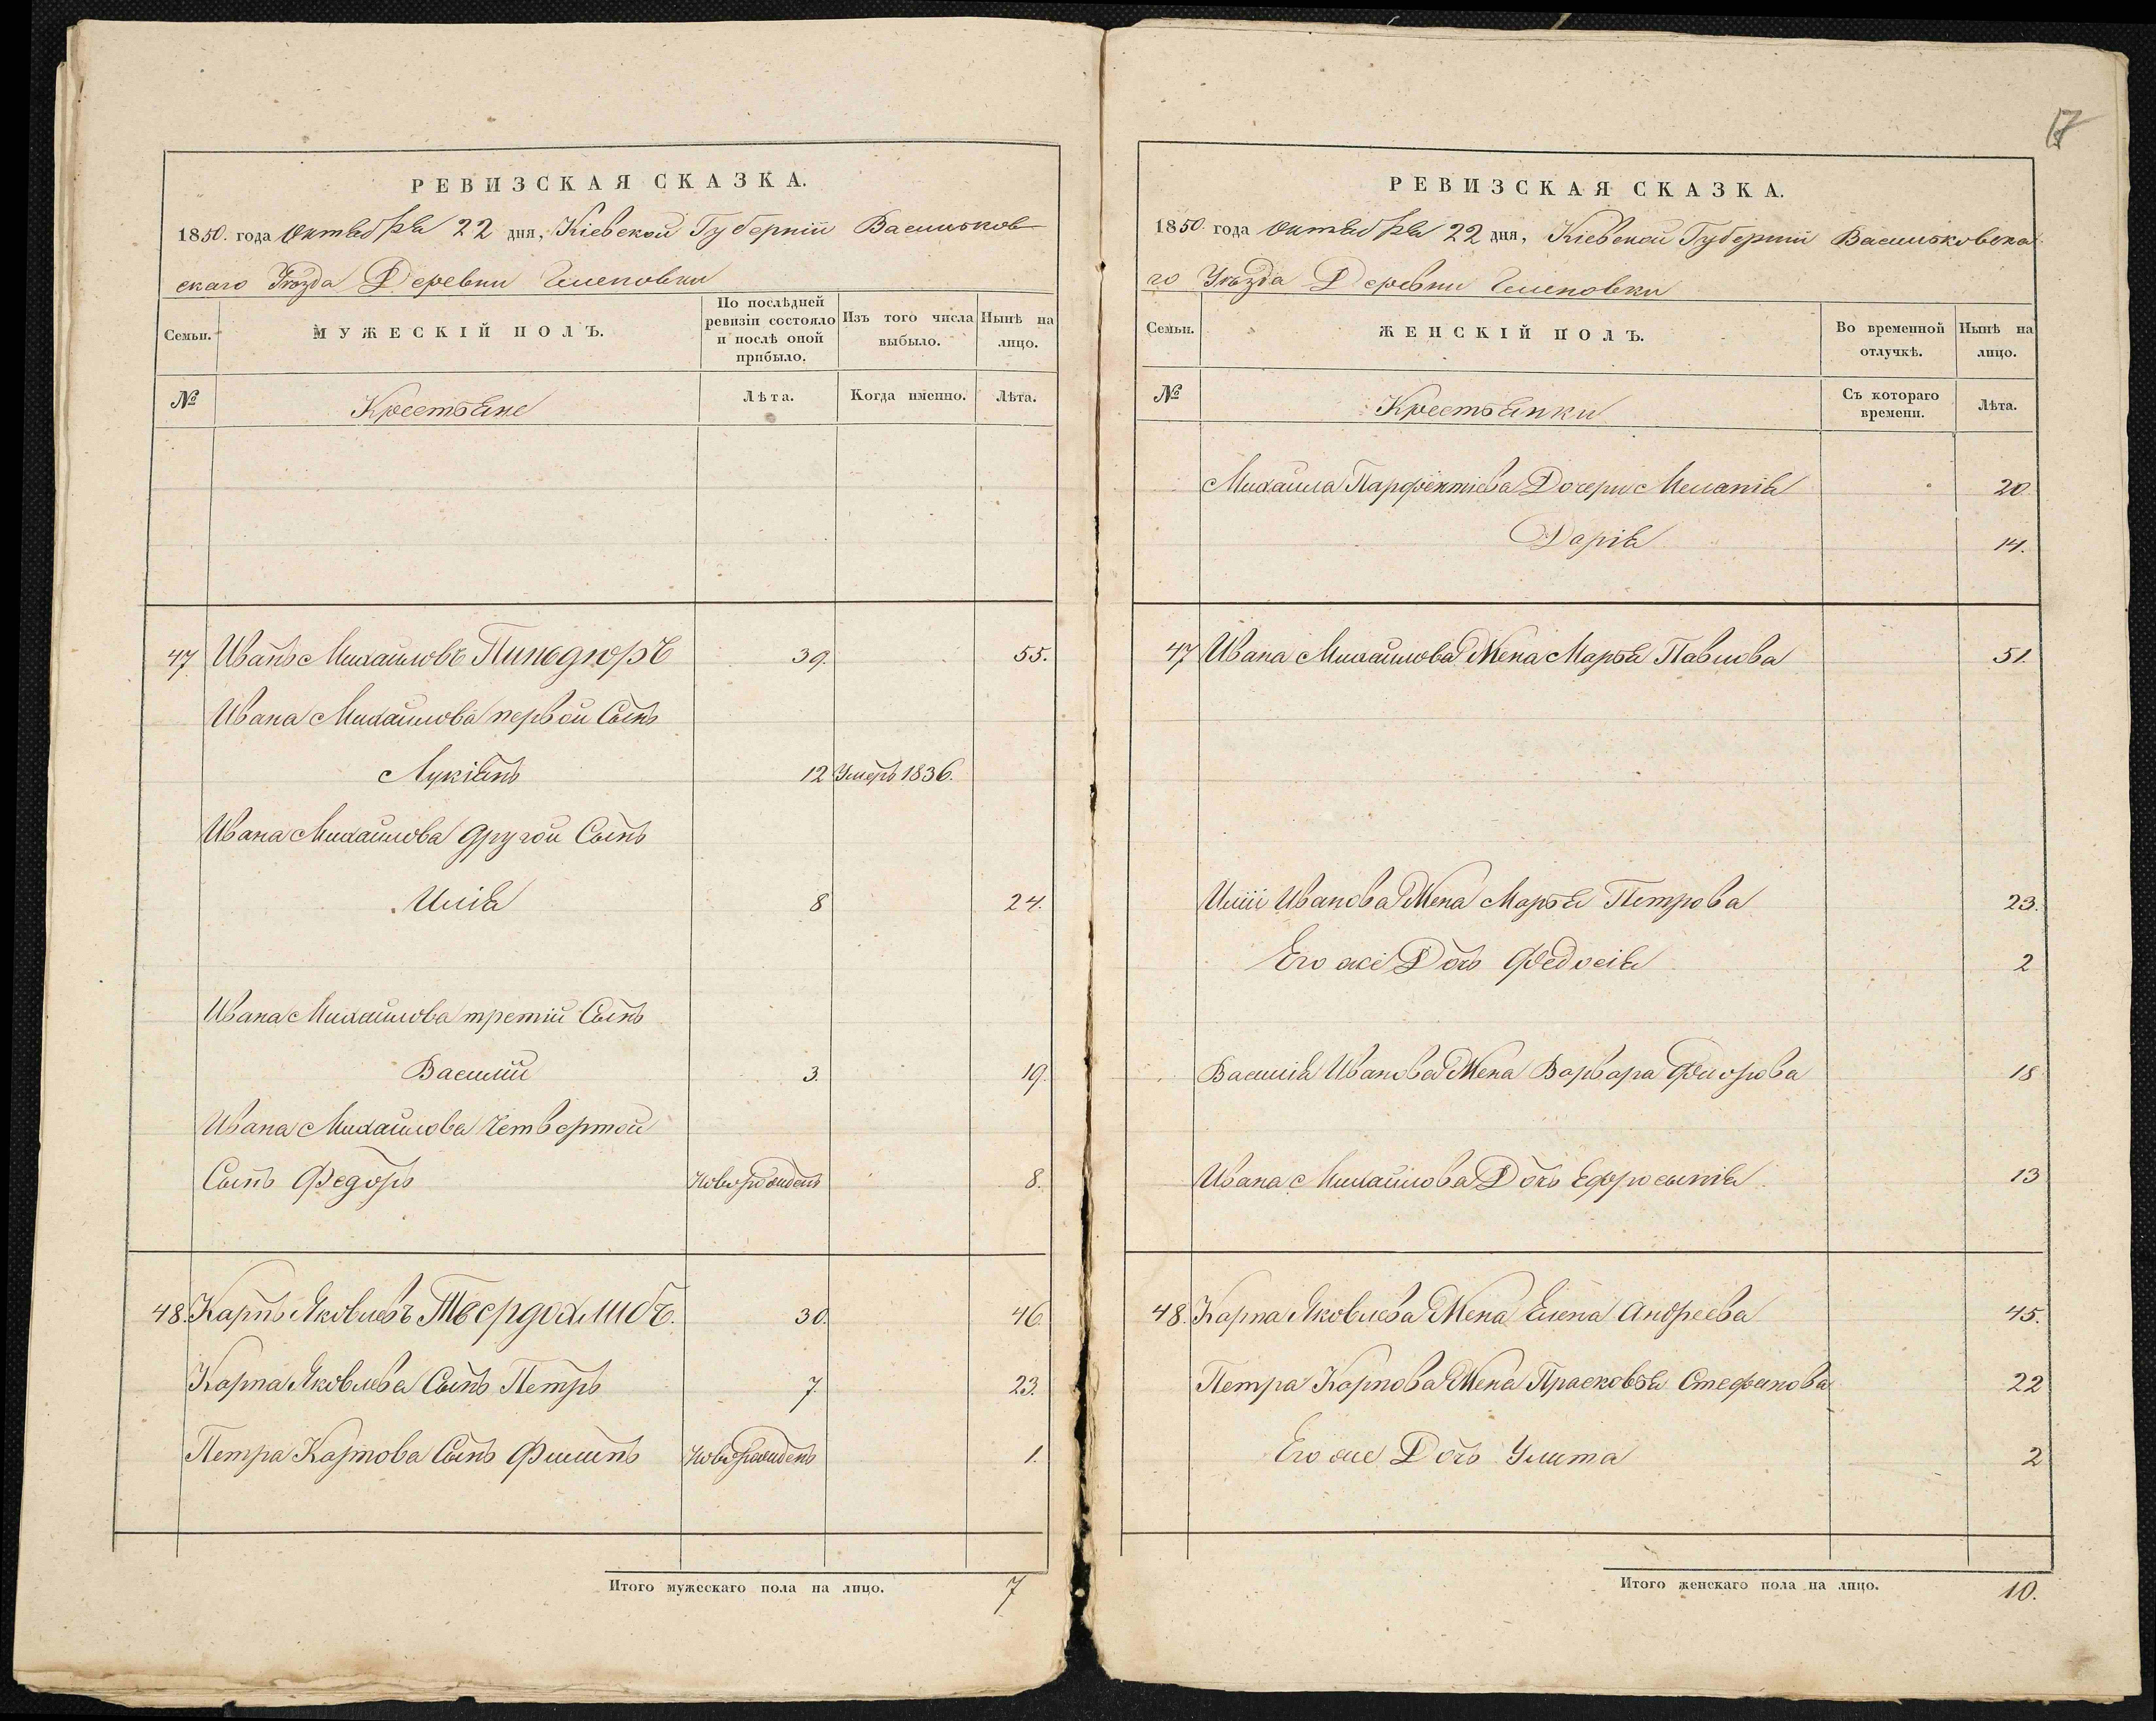 РЕВИЗСКАЯ СКАЗКА.
1850. года Октября 22 дня, Кіевской Губерніи Васильков
скаго Уѣзда Деревни
Семьи. МУЖЕСКІЙ ПОЛЪ. По послѣдней ревизіи состояло и послѣ оной прибыло. Изъ того числа выбыло. Нынѣ на лицо.
№ Крестьяне Лѣта. Когда именно. Лѣта.
47 Иванъ Михайловъ 39. 55.
Ивана Михайлова первой Сынъ
Лукіянъ 12 Умеръ 1836.
Ивана Михайлова другой Сынъ
Илія 8 24.
Ивана Михайлова третій Сынъ
Василій 3. 19.
Ивана Михайлова Четвертой
Сынъ Федоръ Новорожденъ 8.
48. Карпъ Яковлевъ Твердохлибъ. 30. 46.
Карпа Яковлева Сынъ Петръ 7. 23.
Петра Карпова Сынъ Филипъ Новорожденъ 1.
Итого мужескаго пола на лицо. 7
17
РЕВИЗСКАЯ СКАЗКА.
1850. года Октября 22 дня, Кіевской Губерніи Васильковска
го Уѣзда Деревни
Семьи. ЖЕНСКІЙ ПОЛЪ. Во временной отлучкѣ. Нынѣ на лицо.
№ Крестьянки Съ котораго времени. Лѣта.
Михайла Парфентіева Дочери Меланія 20.
Дарія 14.
47 Ивана Михайлова Жена Марья Павлова 51.
Иліи Иванова Жена Марья Петрова 23.
Его же Дочь Федосія 2
Василія Иванова Жена Варвара Флорова 18
Ивана Михайлова Дочь Ефросынія 13
48. Карпа Яковлева Жена Елена Андреева 45.
Петра Карпова Жена Прасковья Стефанова 22
Его же Дочь Улита 2
Итого женскаго пола на лицо. 10.